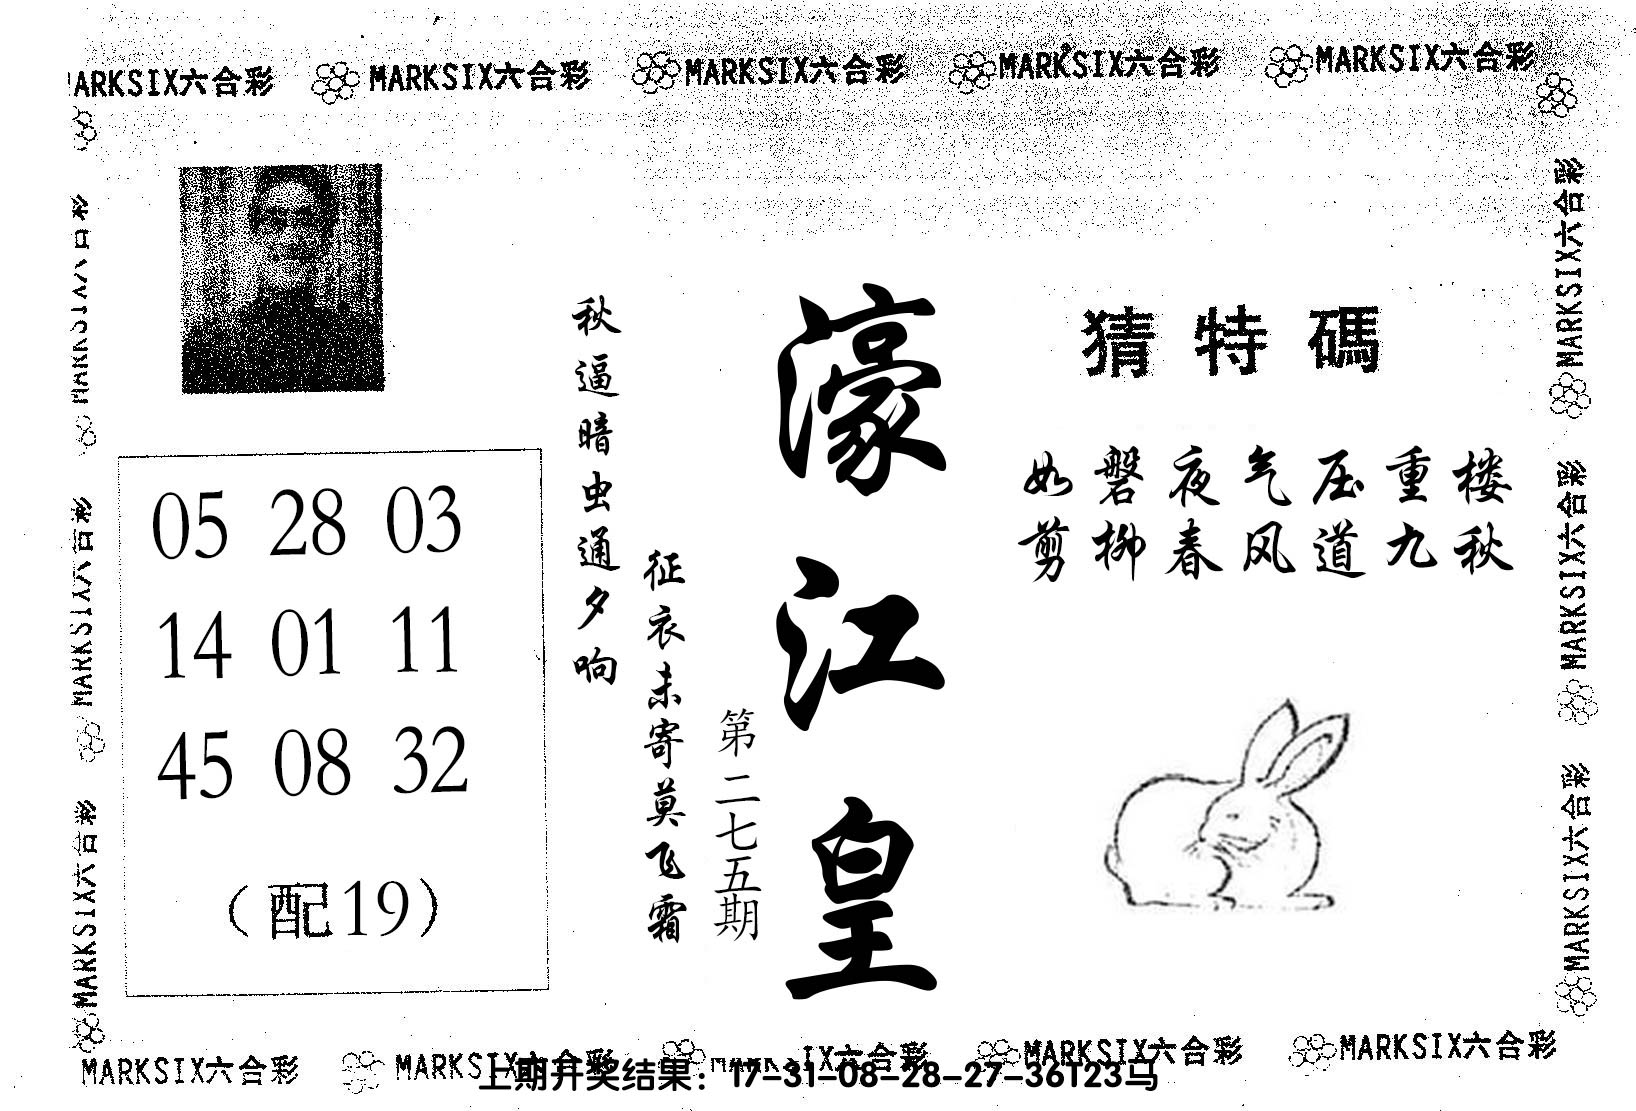 MARKSIX六合彩 MARKSIX六合彩 MARKSIX六合彩 MARKSIX六合彩 MARKSIX六合彩
猜特碼
如磐夜气压重楼
剪柳春风道九秋
濠江皇
第二七五期
秋逼暗虫通夕响
征衣未寄莫飞霜
05 28 03
14 01 11
45 08 32
（配19）
MARKSIX六合彩
MARKSIX六合彩
MARKSIX六合彩
MARKSIX六合彩
MARKSIX六合彩
MARKSIX六合彩
MARKSIX六合彩 MARKSIX六合彩 IX六合彩 MARKSIX六合彩 MARKSIX六合彩
上期开奖结果：17-31-08-28-27-36T23马